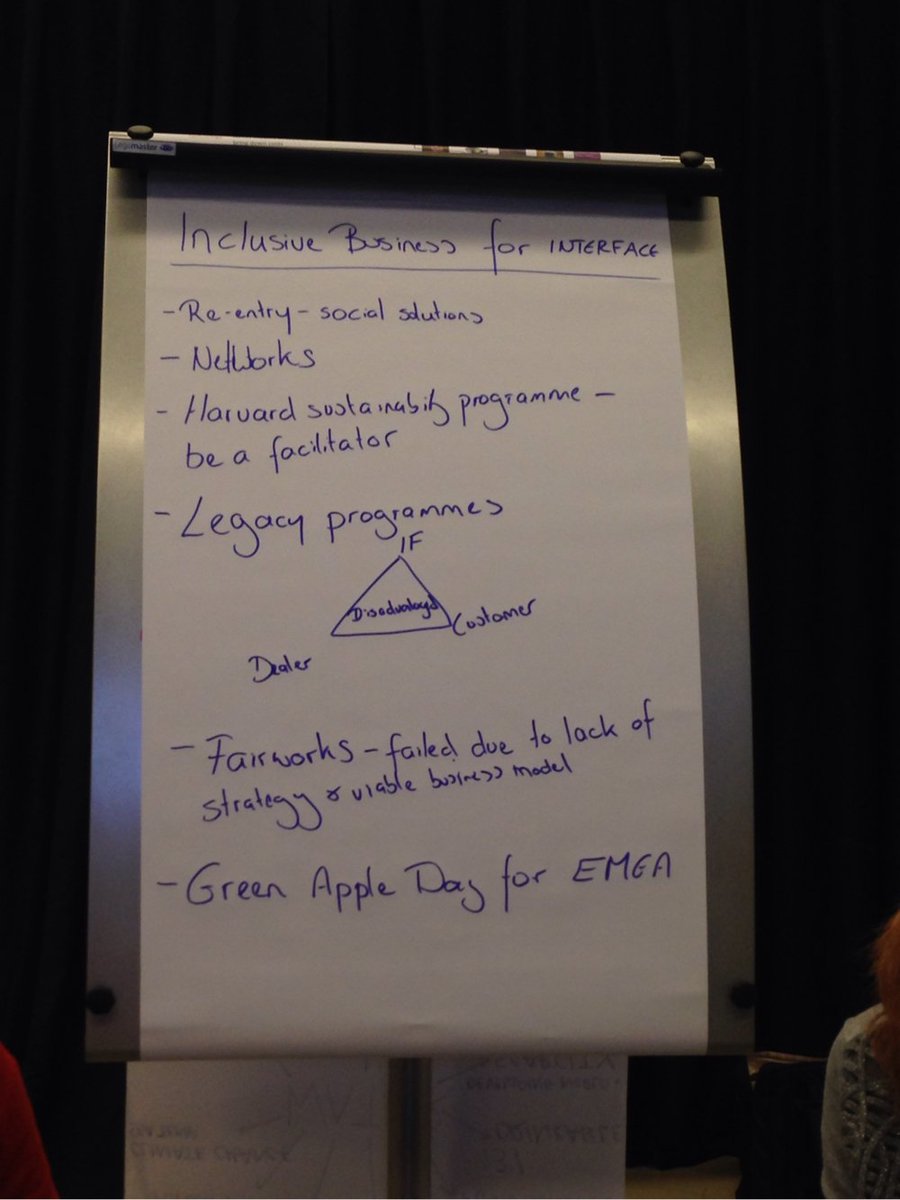 Legamaster
Inclusive Business for INTERFACE
- Re-entry - social solutions
- Networks
- Harvard sustainabity programme -
be a facilitator
- Legacy programmes
IF
Disadvantaged
Customer
Dealer
- Fairworks - failed due to lack of
strategy & viable business model
- Green Apple Day for EMEA
CLIMATE CHANGE